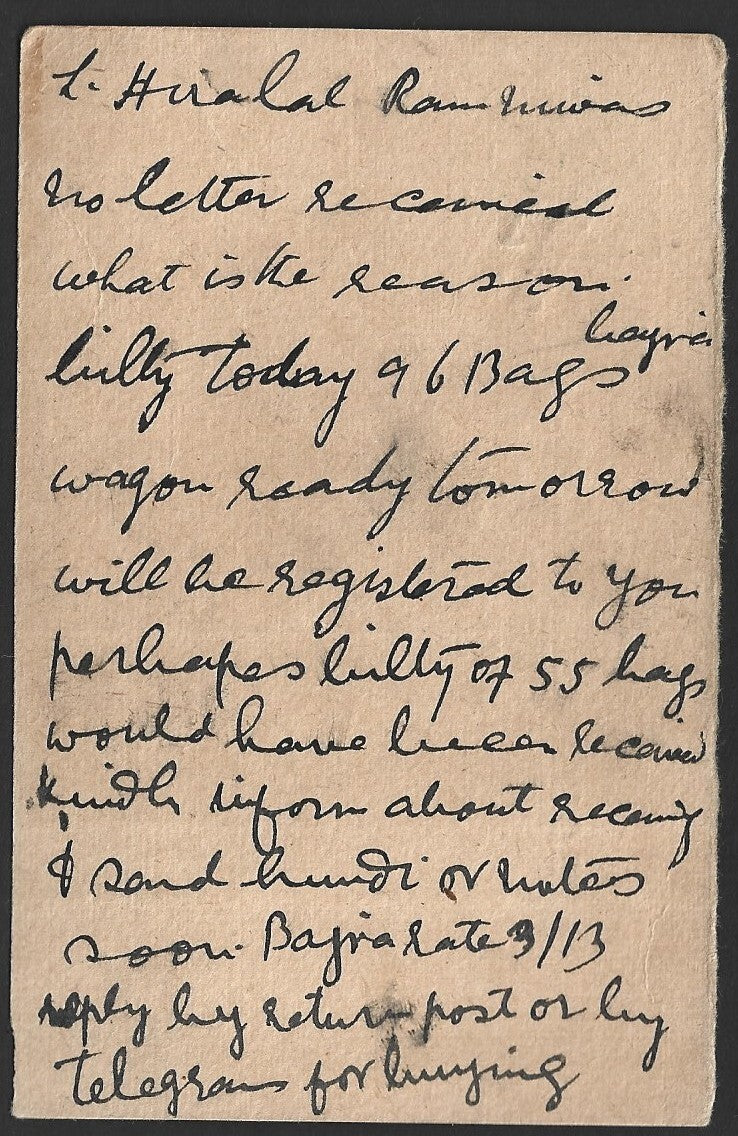 L. Hiralal Ramniwas
no letter received
what is the reason.
bilty today 96 Bags bayra
wagon ready tomorrow
will be registered to you
perhapes bilty of 55 bags
would have been received
kindly inform about receiving
& send hundi or notes
soon. Bajra rate 3/13
reply by return post or by
telegram for buying